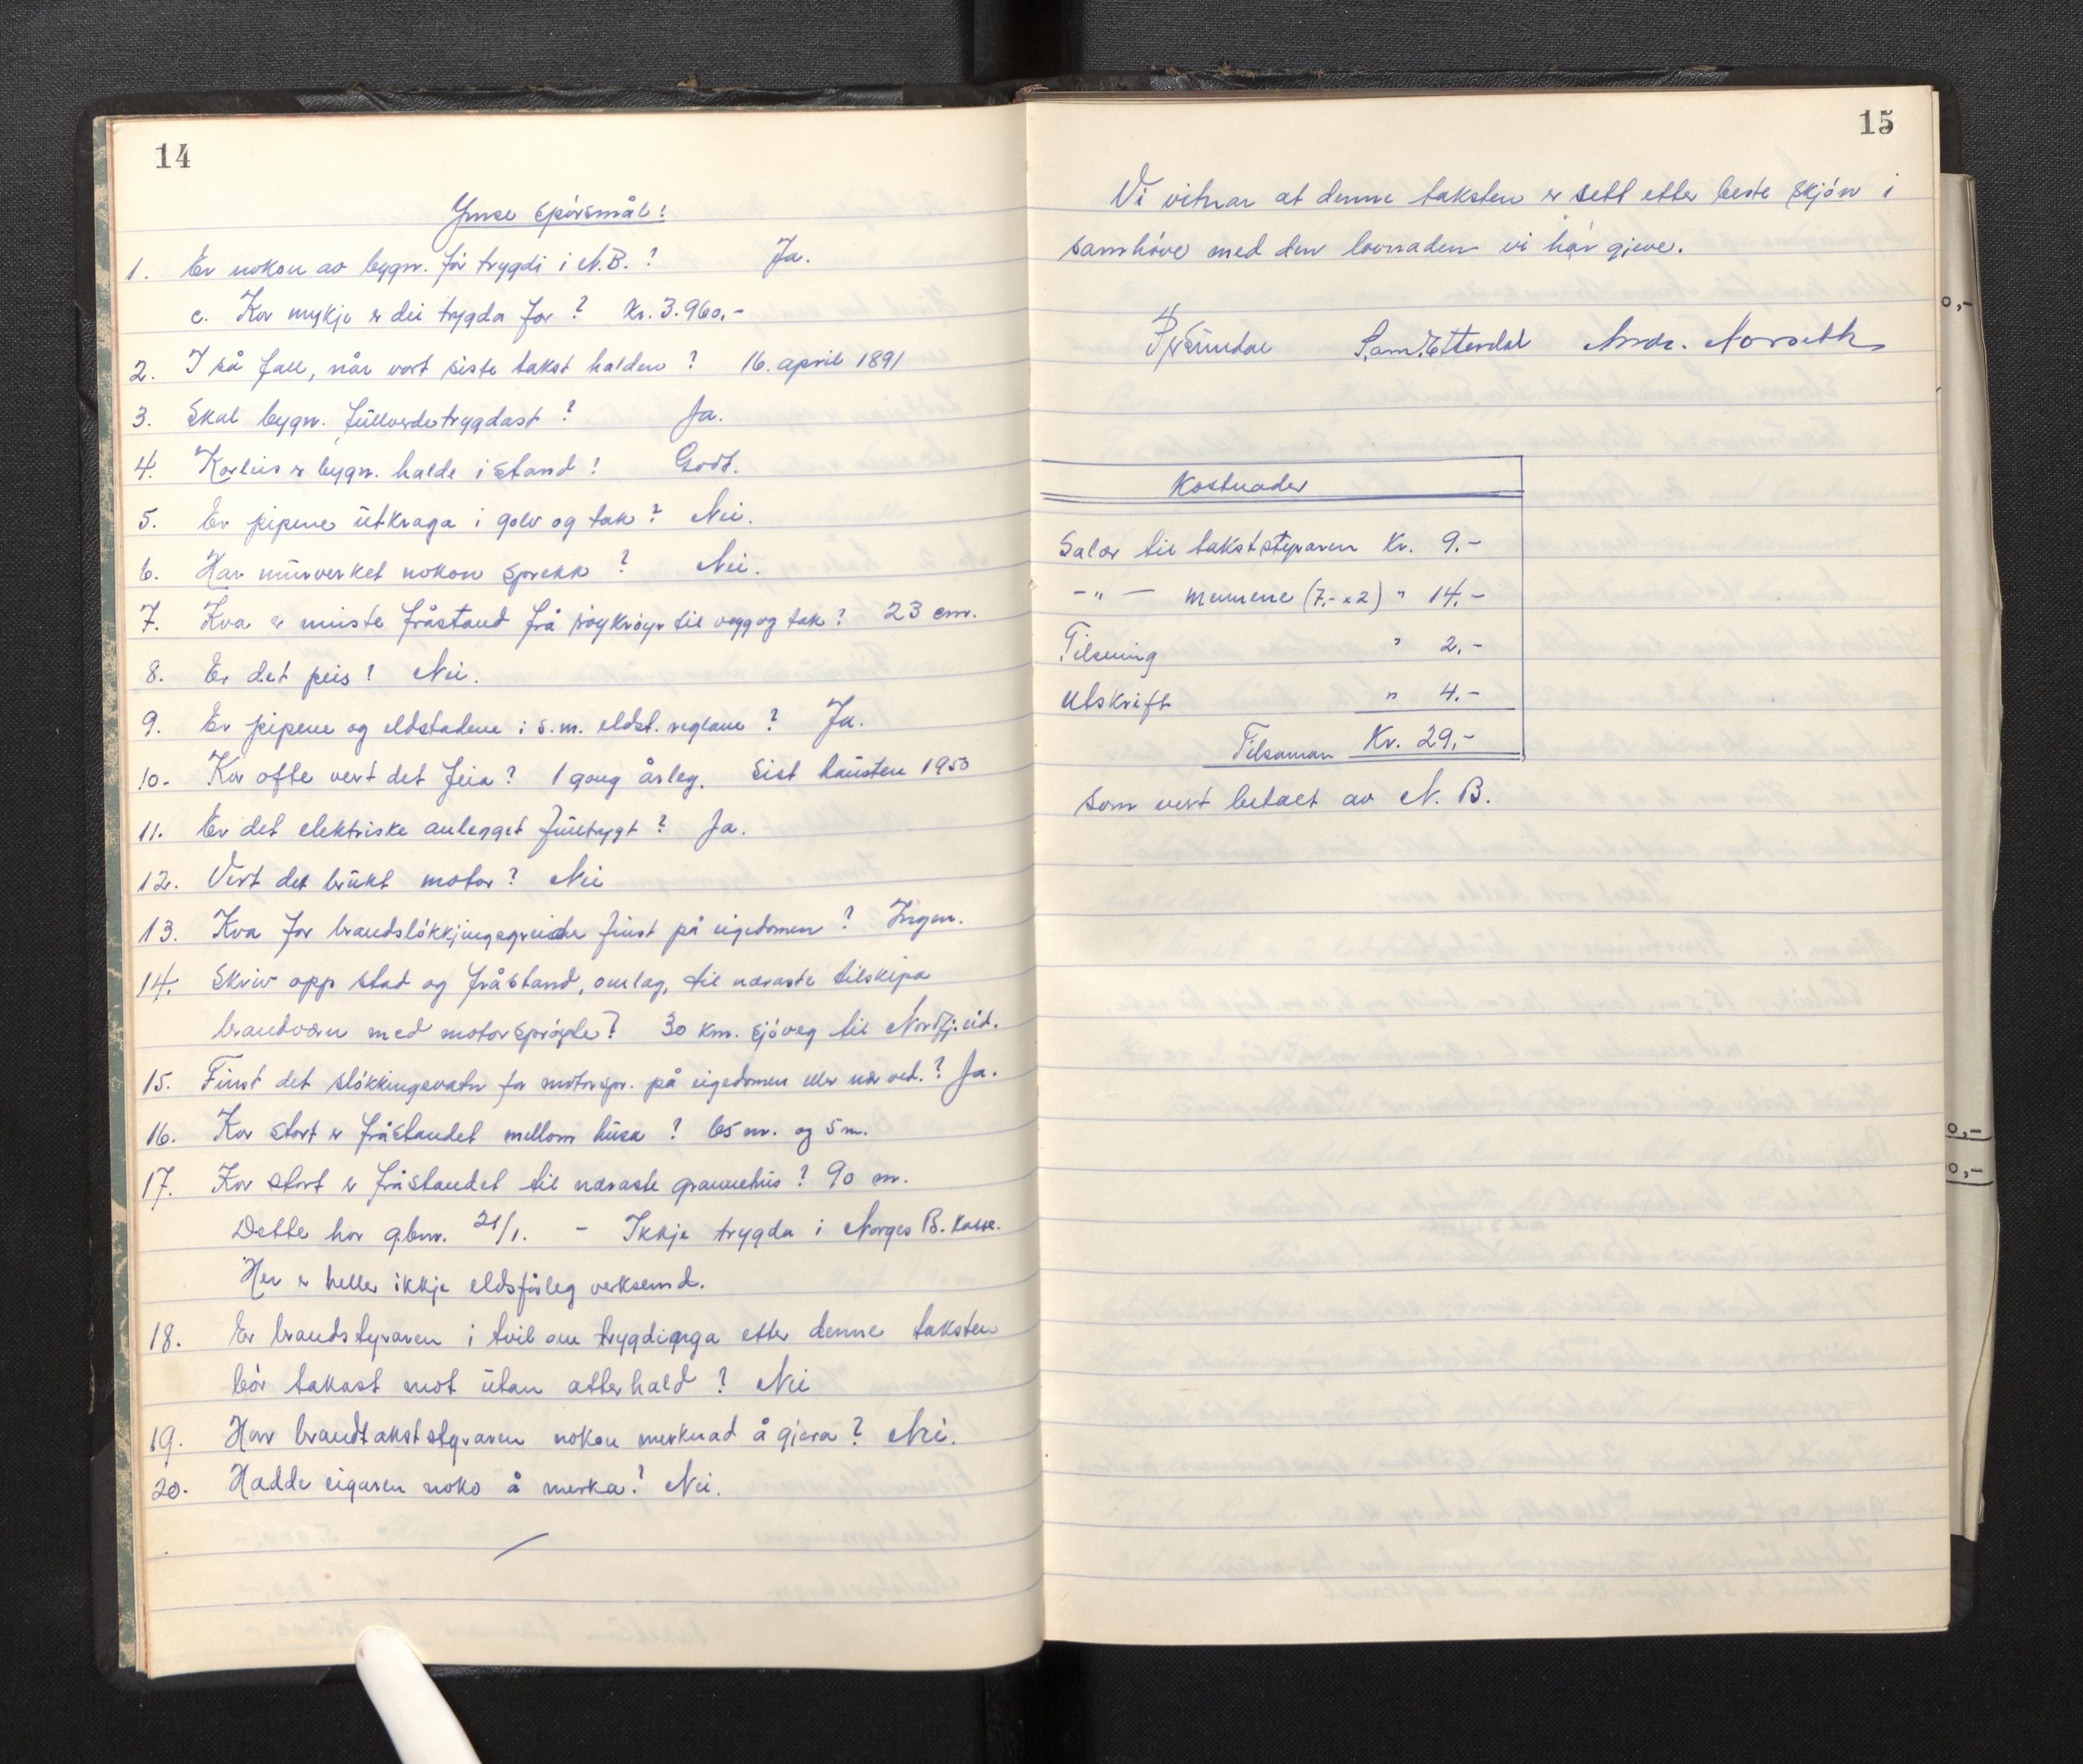 14
Ymse spörsmål:
1. Er nokon av bygn. för trygdi i N.B.? Ja.
c. Kor mykje er dei trygda for? Kr. 3.960,-
2. I så fall, når vart siste takst halden? 16. april 1891
3. Skal bygn. fullverdetrygdast? Ja.
4. Korleis er bygn. halde i stand? Godt.
5. Er pipene utkraga i golv og tak? Nei.
6. Har murverket nokon sprekk? Nei.
7. Kva er minste fråstand frå röykröyr til vegg og tak? 23 cm.
8. Er det peis? Nei.
9. Er pipene og eldstadene i s.m. eldst. reglane? Ja.
10. Kor ofte vert det feia? 1 gong årleg. Sist hausten 1953
11. Er det elektriske anlegget fulltrygt? Ja.
12. Vert det brukt motor? Nei
13. Kva for brandslökkjingsgreide finst på eigedomen? Ingen.
14. Skriv opp stad og fråstand, omlag, til næraste tilskipa
brandvern med motorspröyte? 30 km. sjöveg til Nordfj.eid.
15. Finst det slökkingsvatn for motorspr. på eigedomen eller nær ved.? Ja.
16. Kor stort er fråstandet mellom husa? 65 m. og 5 m.
17. Kor stort er fråstandet til næraste grannehus? 90 m.
Dette har gbnr. 21/1. - Ikkje trygda i Norges B. kasse.
Her er heller ikkje eldsfårleg verksemd.
18. Er brandstyraren i tvil om trygdinga etter denne taksten
bör takast mot utan atterhald? Nei
19. Har brandtakststyraren nokon merknad å gjera? Nei.
20. Hadde eigaren noko å merka? Nei.
15
Vi vitnar at denne taksten er sett etter beste skjön i
samhöve med den lovnaden vi har gjeve.
Andr. Norseth
Kostnader
Salær til takststyraren Kr. 9.-
-"- mennene (7,- x 2) " 14,-
Tilsening " 2,-
Utskrift " 4.-
Tilsaman Kr. 29,-
som vert betalt av N. B.
0,-
0,-
0,-